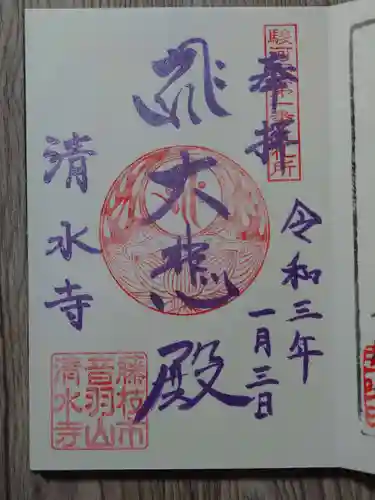 奉拝
令和三年
一月三日
大悲殿
清水寺
藤枝市
音羽山
清水寺